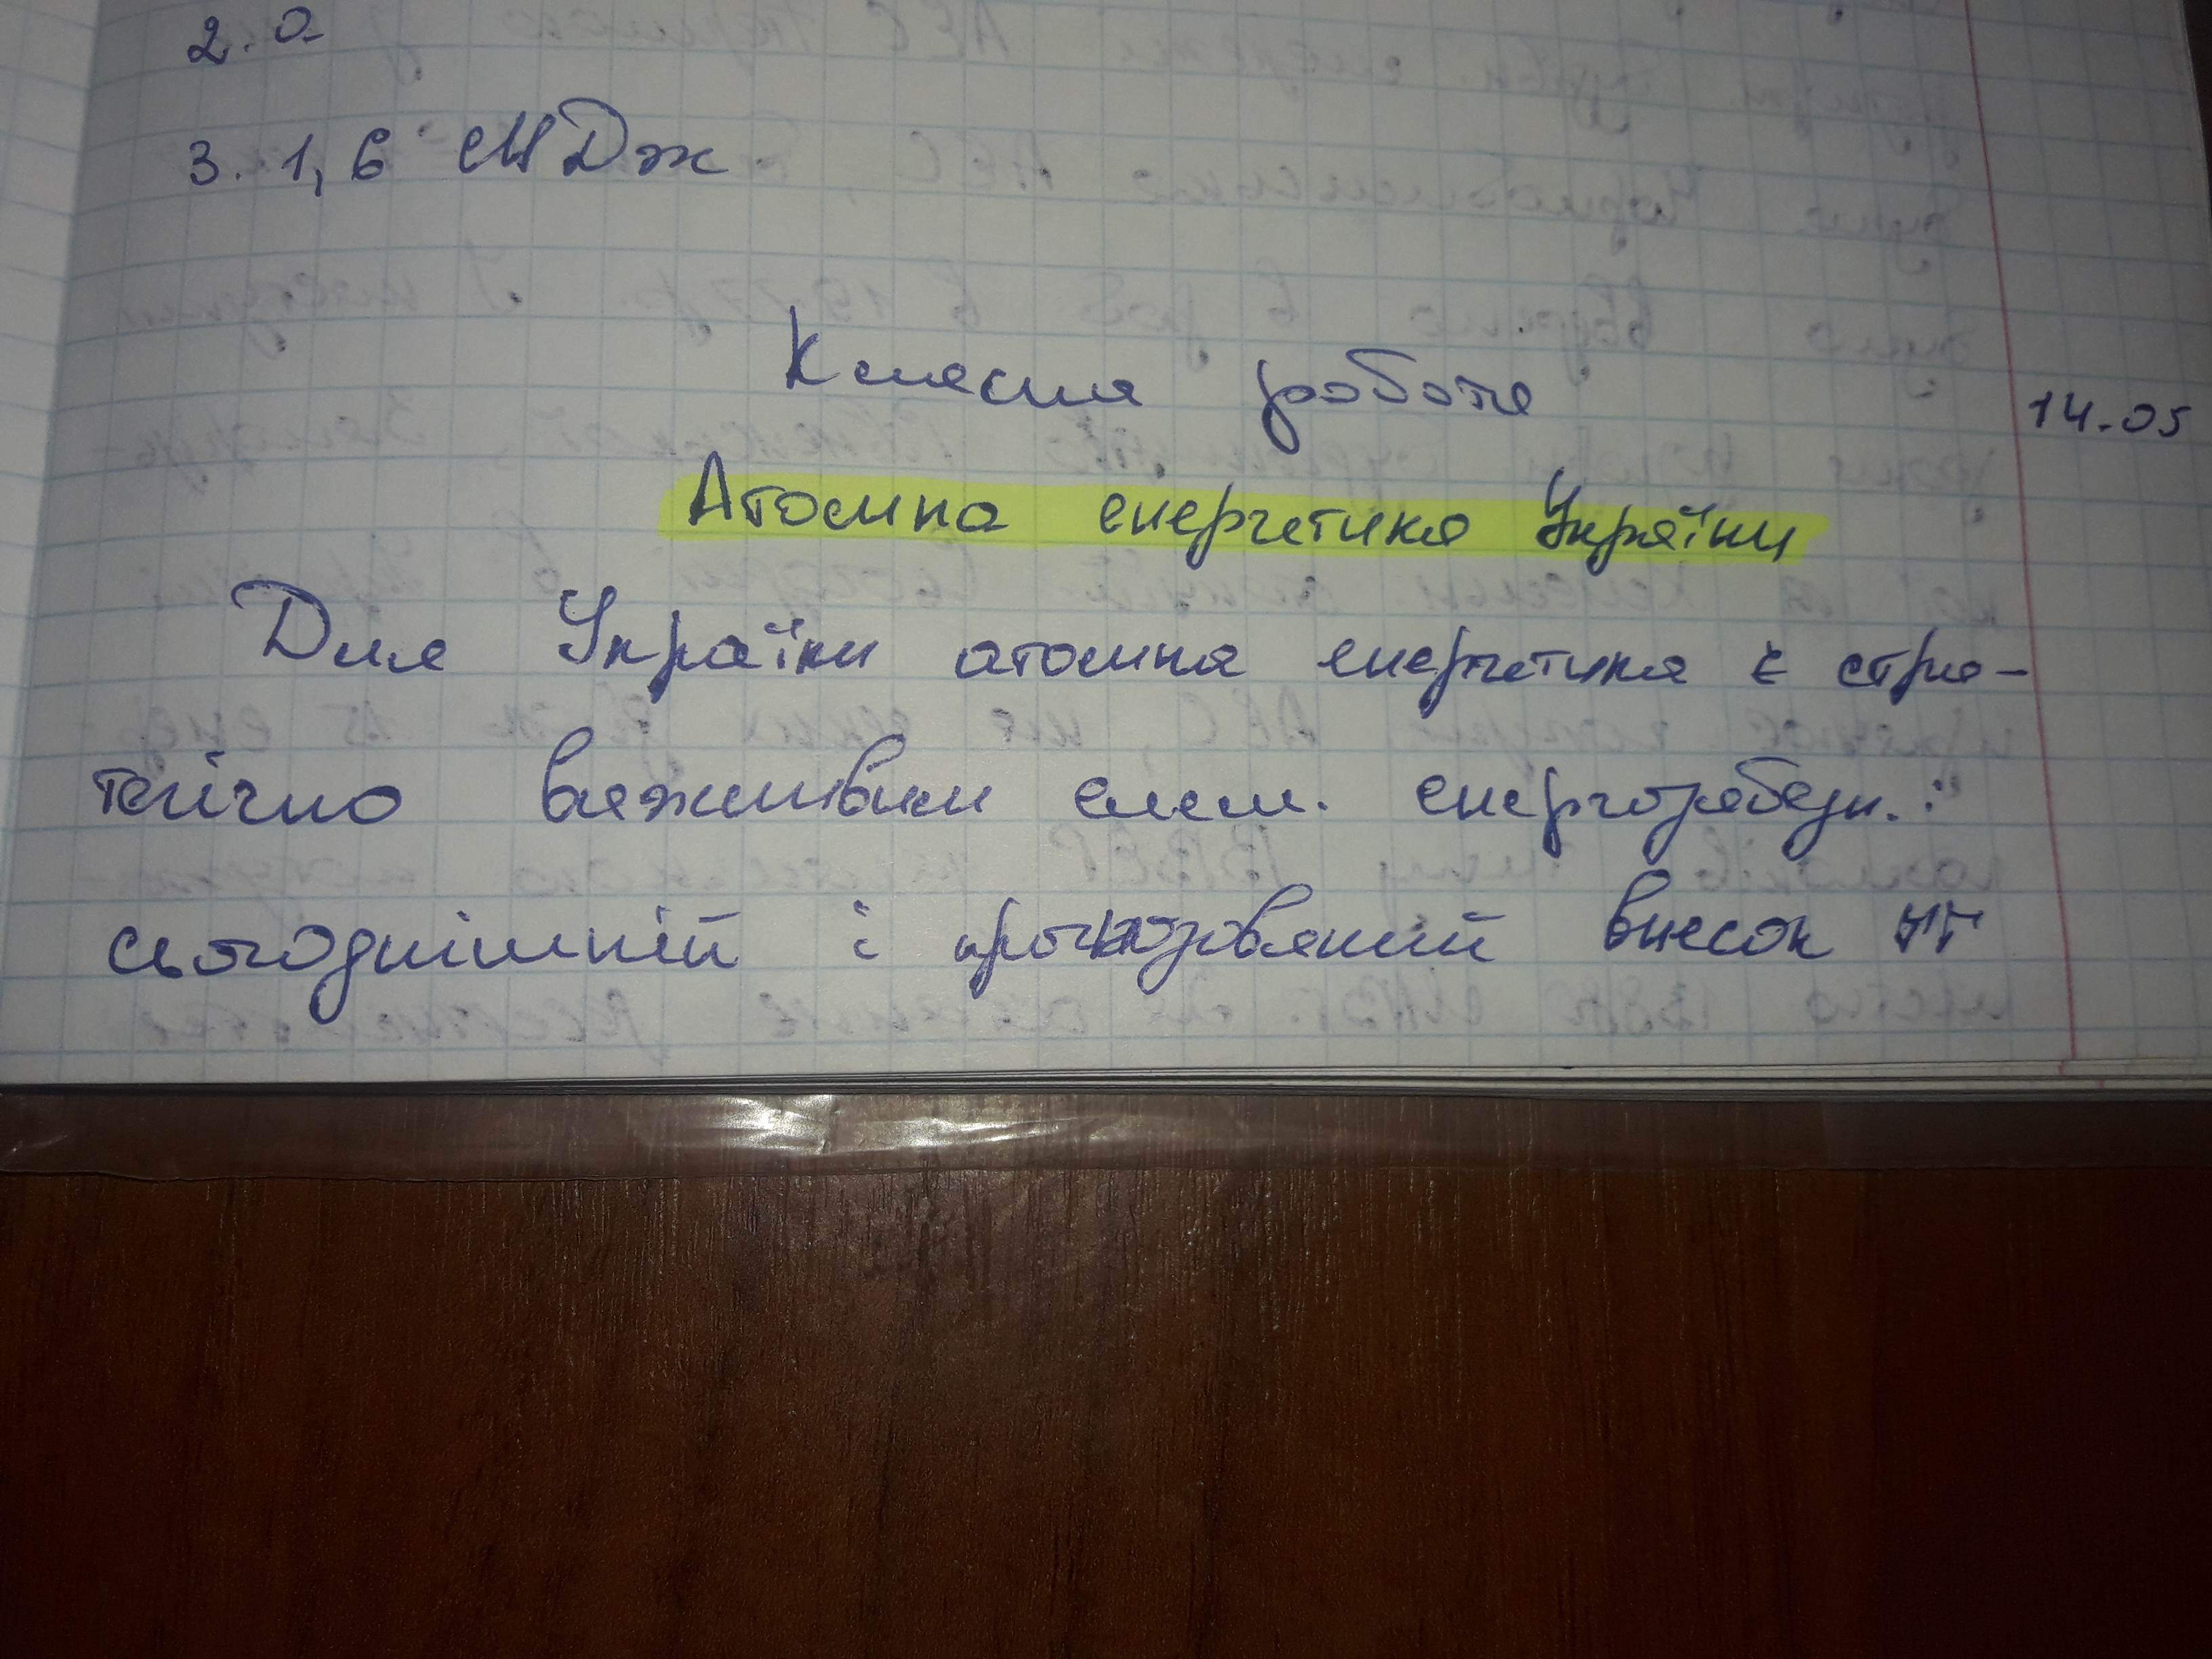 2. а
3. 1,6 МДж
Класна робота
14.05
Атомна енергетика України
Для України атомна енергетика є стра-
тегічно важливим елем. енергозабезп.:
сьогоднішній і прогнозований внесок її